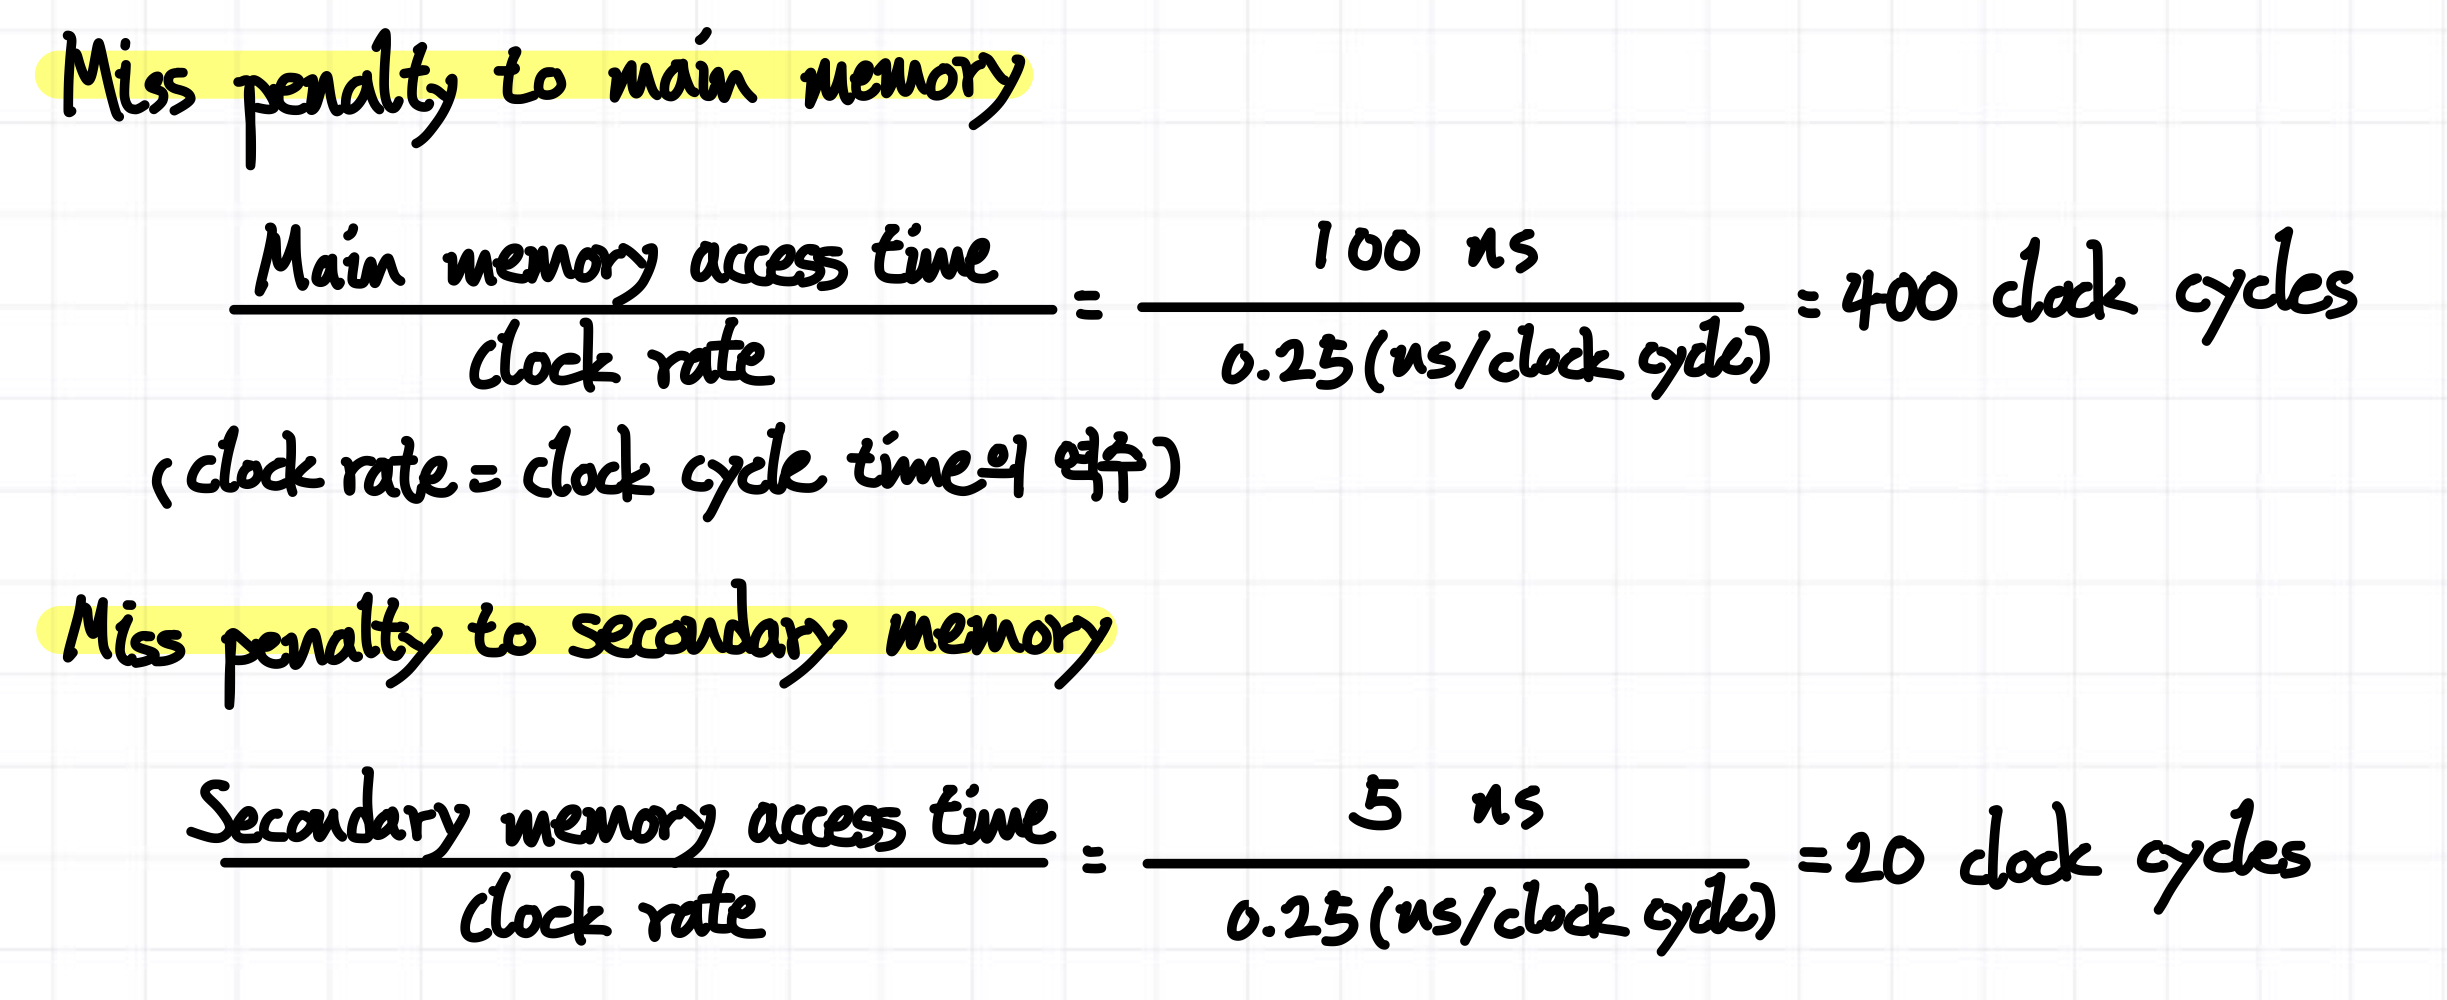 Miss penalty to main memory
Main memory access time
= 100 ns
clock rate
0.25(ns/clock cycle)
= 400 clock cycles
(clock rate = clock cycle time의 역수)
Miss penalty to secondary memory
Secondary memory access time
= 5 ns
clock rate
0.25(ns/clock cycle)
= 20 clock cycles